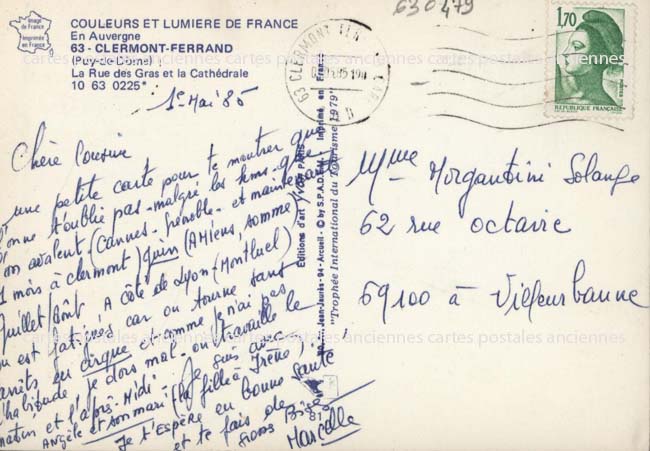 630479
Image de France
Imprimée en France
COULEURS ET LUMIERE DE FRANCE
En Auvergne
63 - CLERMONT-FERRAND
(Puy-de-Dôme)
La Rue des Gras et la Cathédrale
10 63 0225*
1er Mai 85
63 CLERMONT
1,70
REPUBLIQUE FRANÇAISE
Chère Cousine
une petite carte pour te montrer que
l'on ne t'oublie pas - malgré les kms que
l'on avalent (Cannes - Grenoble - et maintenant
1 mois à clermont) Juin (AMiens, somme)
Juillet Août, A côté de Lyon (Montluel)
on est fatigués car on tourne sans
arrêts en cirque et comme je n'ai pas
l'habitude je dors mal - on travaille le
matin et l'après-Midi. Je suis avec
ANgèle et son mari (la fille à Irène),
Je t'Espère en bonne santé
et te fais de gros Bises
Marcelle
Editions d'art YVON PARIS
Jean-Jaurès - 94 - Arcueil - © by S.P.A.D.E.M. Imprimé en France
"Trophée International du Tourisme 1979"
81
Mme Morgantini Solange
62 rue octavie
69100 à Villeurbanne
cartes postales anciennes cartes postales anciennes cartes postales anciennes